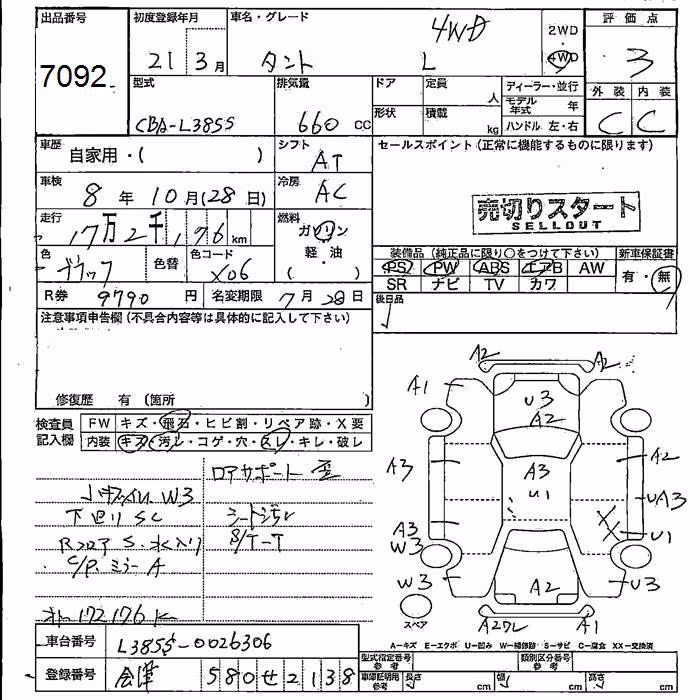 出品番号 初度登録年月 車名・グレード 評価点
7092 21 3月 タント L 4WD 2WD ・ 4WD 3
型式 排気量 ドア 定員 人 ディーラー・並行 外装 内装
CBA-L385S 660 CC 形状 積載 kg モデル年式 年 ハンドル 左・右 C C
車歴 自家用・( ) シフト AT セールスポイント(正常に機能するものに限ります)
車検 8年10月(28日) 冷房 AC
売切りスタート
SELLOUT
走行 17万2千176km 燃料 ガソリン 軽・油 ( )
色 ブラック 色替 色コード X06
装備品(純正品に限り○をつけて下さい) 新車保証書
PS PW ABS エアB AW 有・無
SR ナビ TV カワ
R券 9790円 名変期限 7月28日 後日品
注意事項申告欄(不具合内容等は具体的に記入して下さい)
修復歴 有(箇所 )
検査員記入欄 FW キズ・飛石・ヒビ割・リペア跡・X要
内装 キズ・汚レ・コゲ・穴・スレ・キレ・破レ
ロアサポート 歪
W3
下廻リSC シート汚レ
Rフロア S.水入リ S/T-T
C/P.ミラーA
オト172176K
A2 A2
A1 U3
A2
A3 A3 A2
U1 UA3
A3 U1
W3
W3 A2 U3
スペア A2ワレ A1
A-キズ E-エクボ U-凹み W-補修跡 S-サビ C-腐食 XX-交換済
車台番号 L385S-0026306
登録番号 会津 580せ2138
型式指定番号参考 類別区分番号参考
車庫証明用参考 長さ cm 幅 cm 高さ cm